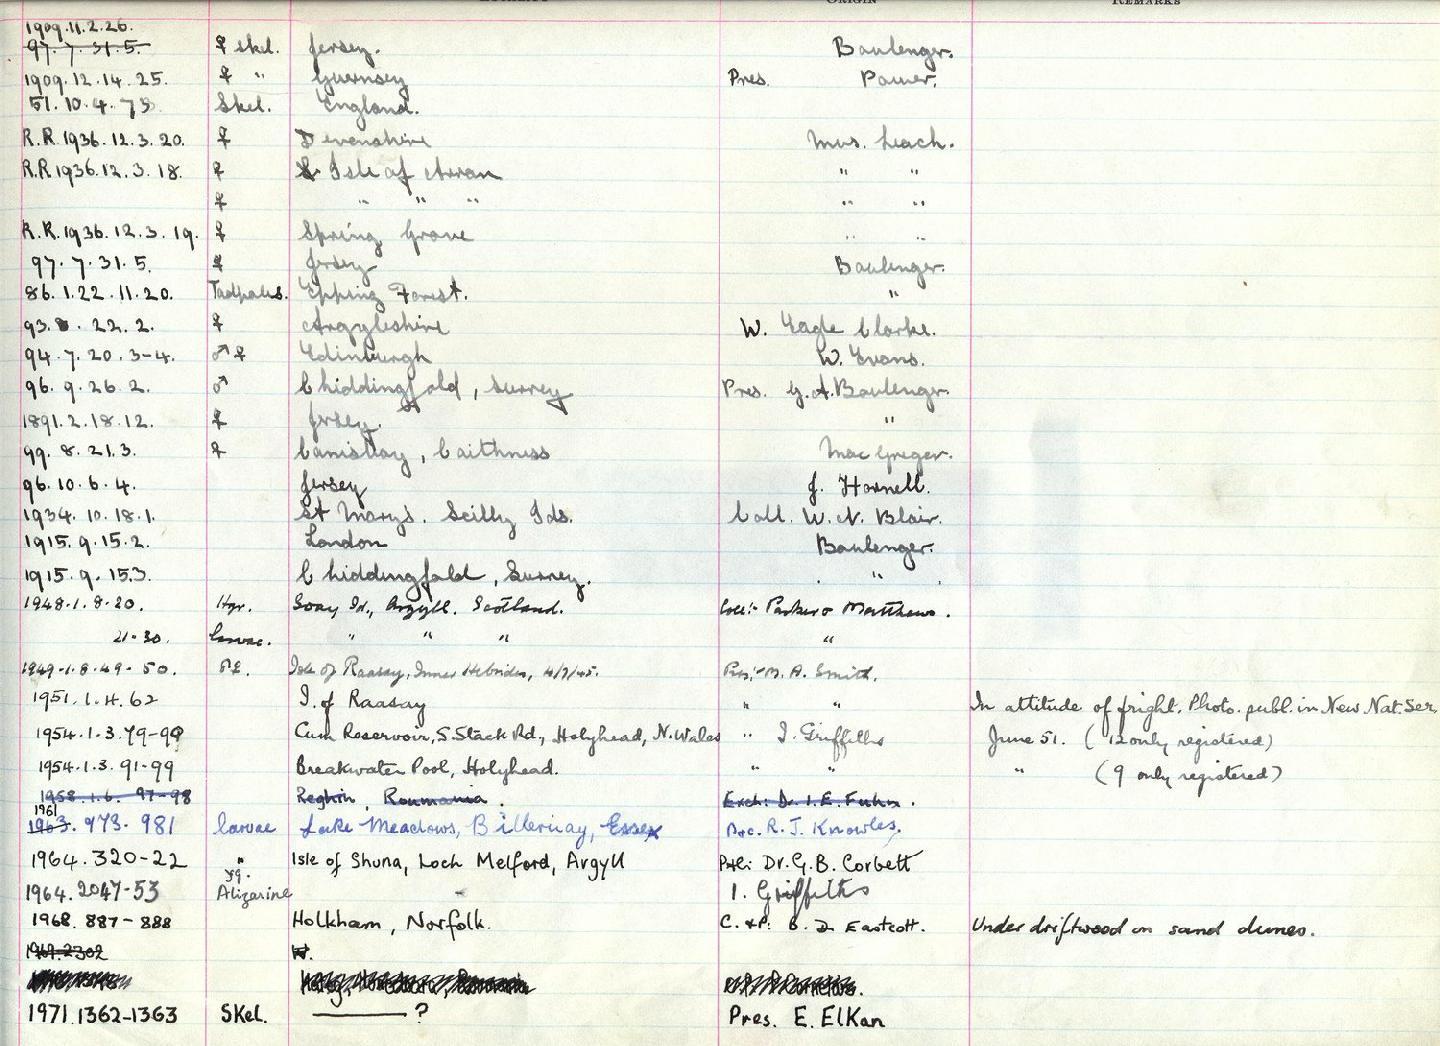 ORIGIN REMARKS
1909.11.2.26.
97.7.31.5. ♀ skel. Jersey. Boulenger.
1909.12.14.25. ♀ " Guernsey Pres. Power.
51.10.4.75 Skel. England.
R.R.1936.12.3.20. ♀ Devonshire Mus. Leach.
R.R.1936.12.3.18. ♀ Isle of Arran " "
♀ " " " " "
R.R.1936.12.3.19. ♀ Spring Grove " "
97.7.31.5. ♀ Jersey Boulenger.
86.1.22.11.20. Tadpoles. Epping Forest. "
93.8.22.2. ♀ Argyleshire W. Eagle Clarke.
94.7.20.3-4. ♂♀ Edinburgh W. Evans.
96.9.26.2. ♂ Chiddingfold, Surrey Pres. G.A. Boulenger.
1891.2.18.12. ♀ Jersey. "
99.8.21.3. ♀ Canisbay, Caithness MacGregor.
96.10.6.4. Jersey J. Hornell.
1934.10.18.1. St Marys. Scilly Ids. Coll. W.N. Blair.
1915.9.15.2. London Boulenger.
1915.9.15.3. Chiddingfold, Surrey. "
1948.1.8.20. Hgr. Soay Id., Argyll. Scotland. Coll:- Parker & Matthews.
21-30. larvae. " " " "
1949.1.8.49-50. ♂♀. Isle of Raasay, Inner Hebrides, 4/7/45. Pres:- M.A. Smith.
1951.1.4.62 I. of Raasay " " In attitude of fright. Photo. publ. in New Nat. Ser.
1954.1.3.79-90 Cum Reservoir, S. Stack Rd., Holyhead, N. Wales " I. Griffiths June 51. (12 only registered)
1954.1.3.91-99 Breakwater Pool, Holyhead. " " " (9 only registered)
1958.1.6.97-98 Reghin, Roumania. Exch: Dr. I.E. Fuhn.
1961
1963.973-981 larvae Lake Meadows, Billericay, Essex Pres. R.J. Knowles.
1964.320-22 " Isle of Shuna, Loch Melford, Argyll Dr. G.B. Corbett
yg.
1964.2047-53 Alizarine - I. Griffiths
1968.887-888 Holkham, Norfolk. C. & P. B.D. Eastcott. Under driftwood on sand dunes.
W.
1971.1362-1363 Skel. ——? Pres. E. Elkan